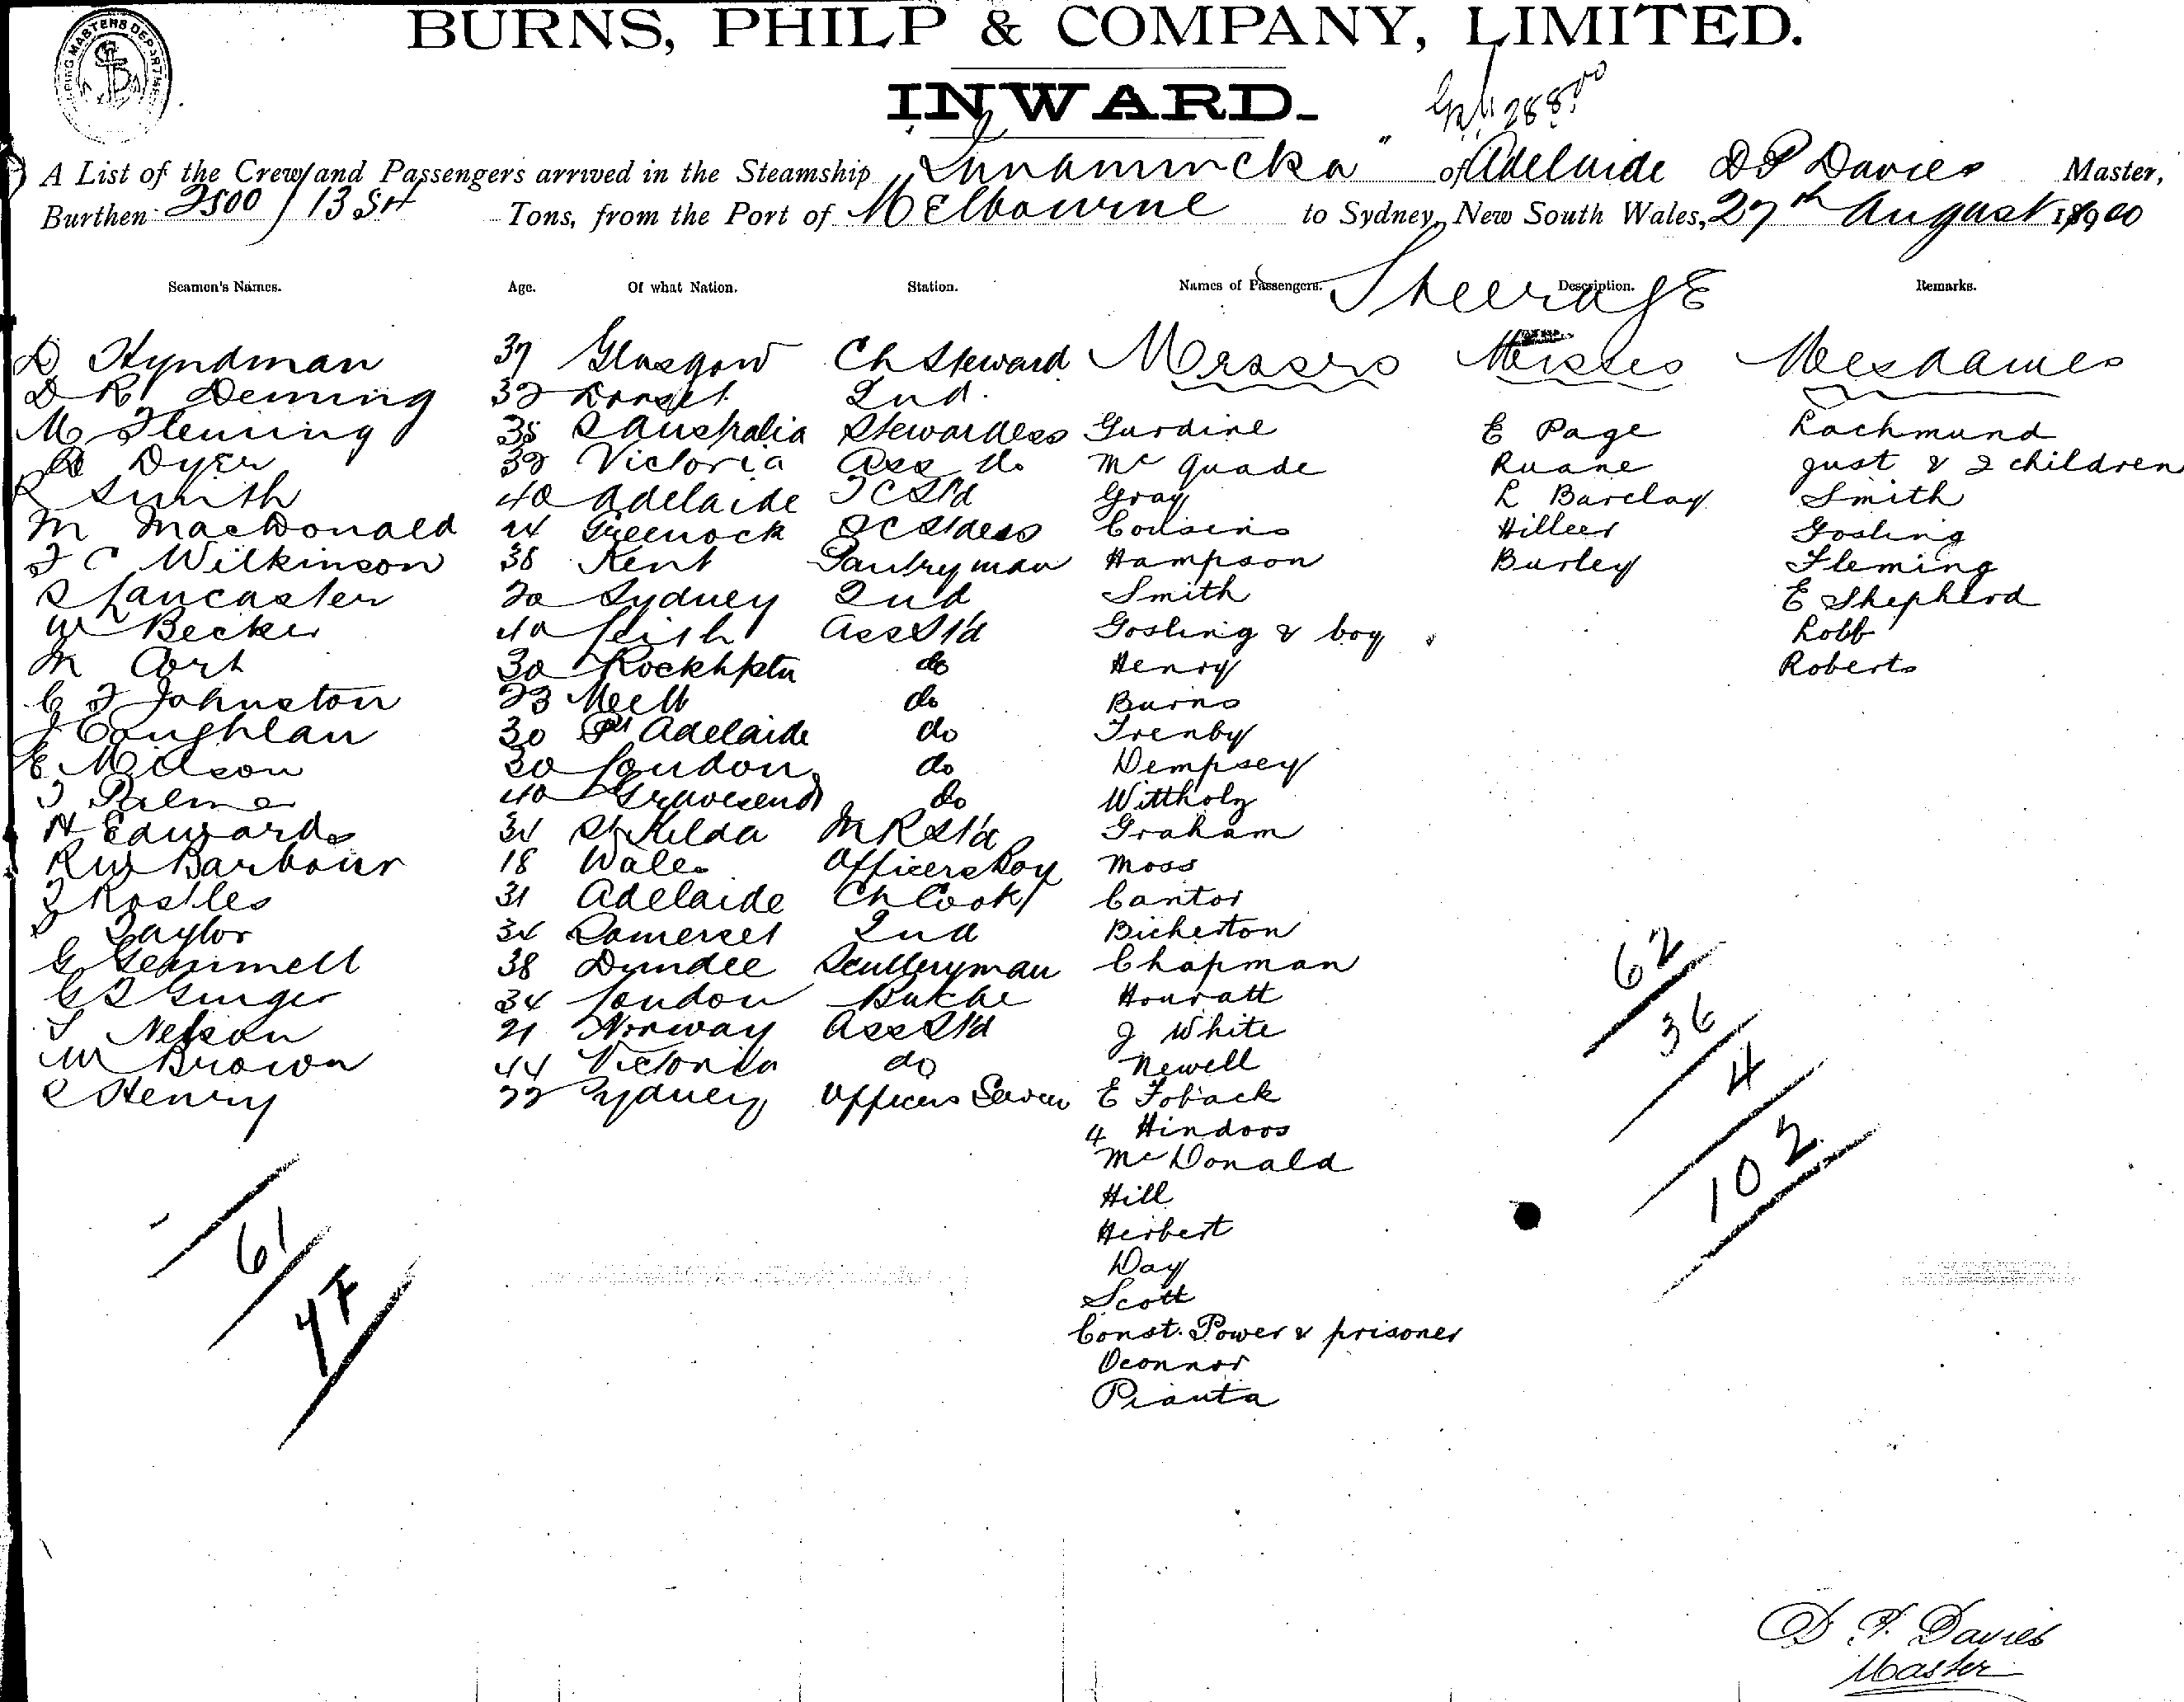 BURNS, PHILP & COMPANY, LIMITED.
INWARD.
A List of the Crew and Passengers arrived in the Steamship "Innamincka" of Adelaide D P Davies Master,
Burthen 2500 / 13 Tons, from the Port of Melbourne to Sydney, New South Wales, 27th August 1900
Seamen's Names. Age. Of what Nation. Station. Names of Passengers. Description. Remarks.
Steerage
D Hyndman 37 Glasgow Ch Steward Messrs Misses Mesdames
D R Deming 32 Dorset 2nd.
M Fleming 35 S Australia Stewardess Jurdine E Page Lachmund
Dyer 32 Victoria Ass do Mc Quade Ruane Just & 2 children
R Smith 40 Adelaide Gray L Barclay Smith
M MacDonald 24 Greenock Cousens Hilleer Gosling
J C Wilkinson 38 Kent Pantryman Hampson Burley Fleming
S Lancaster 20 Sydney 2nd Smith E Shepherd
W Becker 40 Leith Ass St'd Gosling & boy Robb
M Cort 30 Rockhptn do Henry Roberts
C J Johnston 23 Melb do Burns
J Coughlan 30 Pt Adelaide do Trenby
E Milson 30 London do Dempsey
J Palmer 40 Gravesend do Wittholz
H Edwards 34 St Kilda M R St'd Graham
R W Barbour 18 Wales Officers Boy Moss
J Rostles 31 Adelaide Ch Cook Cantor
S Taylor 34 Somerset 2nd Bicherton
G Gemmell 38 Dundee Sculleryman Chapman
C S Ginger 34 London Butcher Houratt
S Nelson 21 Norway Ass St'd J White
W Brown 44 Victoria do Newell
R Henry 22 Sydney Officers Servan E Foback
4 Hindoos
Mc Donald
Hill
Herbert
Day
Scott
Const. Power & prisoner
Oconnor
Pianta
61
47
62
36
4
102
D P. Davies
Master